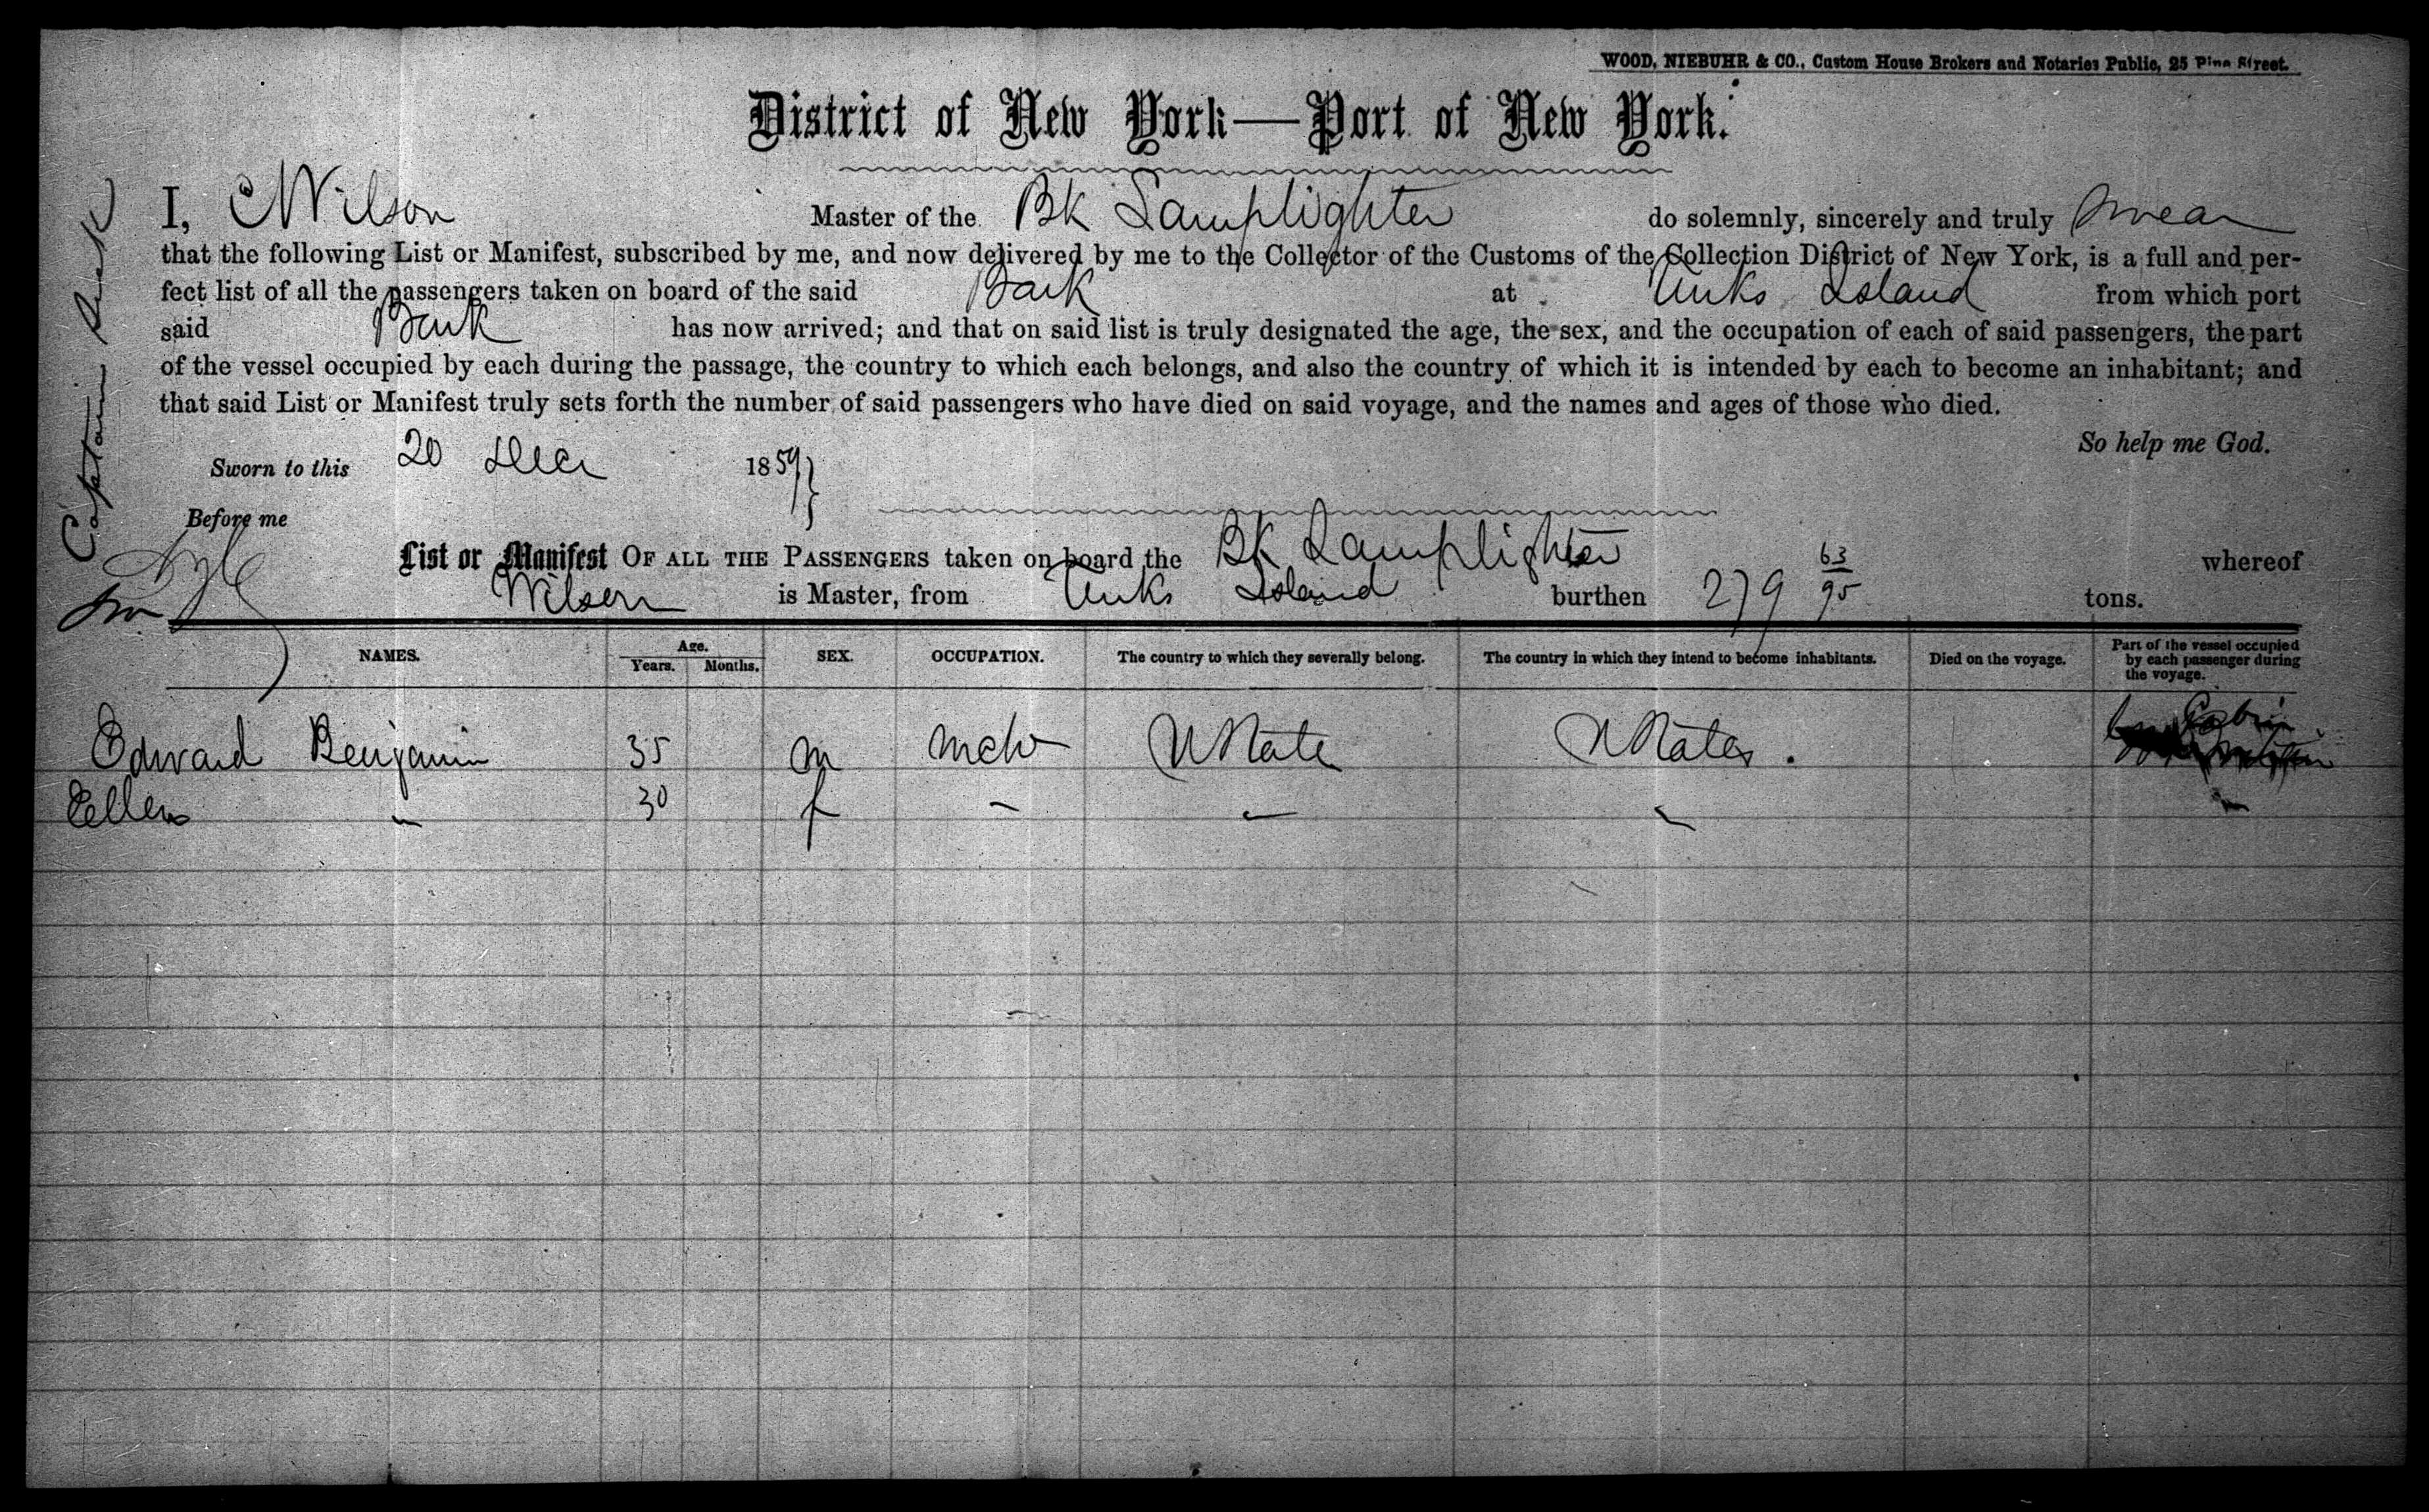 WOOD, NIEBUHR & CO., Custom House Brokers and Notaries Public, 25 Pine Street.
District of New York—Port of New York.
I, Wilson Master of the Bk Lamplighter do solemnly, sincerely and truly swear
that the following List or Manifest, subscribed by me, and now delivered by me to the Collector of the Customs of the Collection District of New York, is a full and per-
fect list of all the passengers taken on board of the said Bark at Turks Island from which port
said Bark has now arrived; and that on said list is truly designated the age, the sex, and the occupation of each of said passengers, the part
of the vessel occupied by each during the passage, the country to which each belongs, and also the country of which it is intended by each to become an inhabitant; and
that said List or Manifest truly sets forth the number of said passengers who have died on said voyage, and the names and ages of those who died.
So help me God.
Sworn to this 20 Dec 1859
Before me
Captain
List or Manifest OF ALL THE PASSENGERS taken on board the Bk Lamplighter whereof
Wilson is Master, from Turks Island burthen 279 63/95 tons.
NAMES. Age. Years. Months. SEX. OCCUPATION. The country to which they severally belong. The country in which they intend to become inhabitants. Died on the voyage. Part of the vessel occupied by each passenger during the voyage.
Edward Benjamin 35 m mch U State U States. Cabin
Ellen " 30 f " " " "